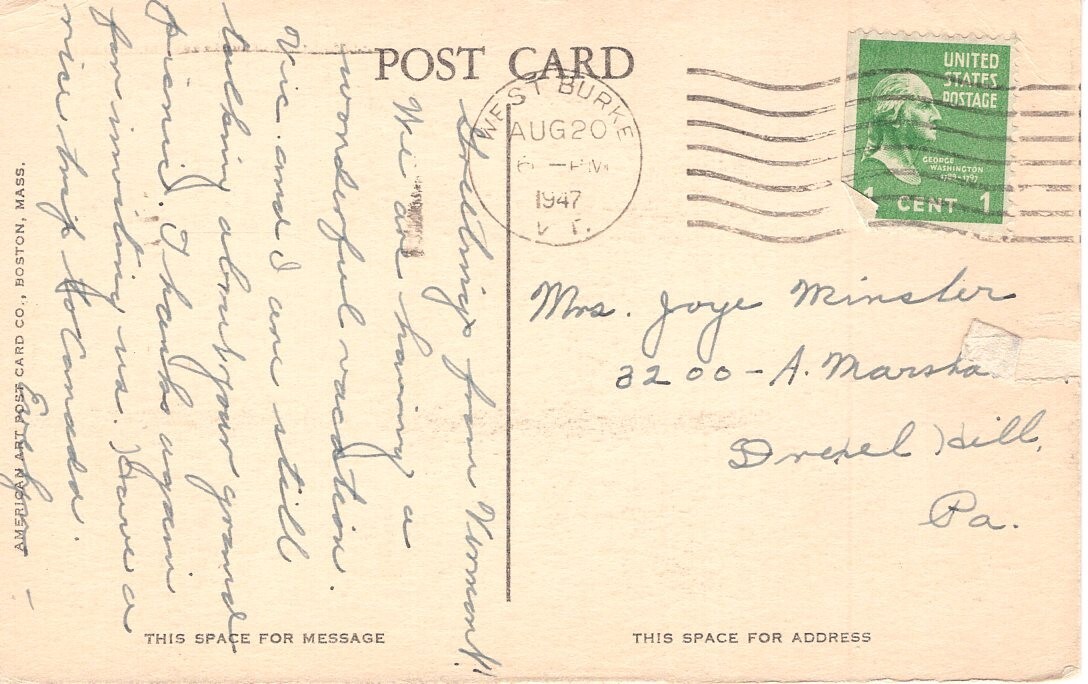 POST CARD
WEST BURKE
AUG 20
6 - PM
1947
V T.
UNITED
STATES
POSTAGE
GEORGE
WASHINGTON
1789-1797
1 CENT 1
Greetings from Vermont!
We are having a
wonderful vacation.
Vic and I are still
talking about your grand
picnic. Thanks again
for inviting us. Have a
nice trip to Canada.
Evelyn -
Mrs. Joye Minster
3200 - A. Marsha
Drexel Hill,
Pa.
THIS SPACE FOR MESSAGE
THIS SPACE FOR ADDRESS
AMERICAN ART POST CARD CO., BOSTON, MASS.